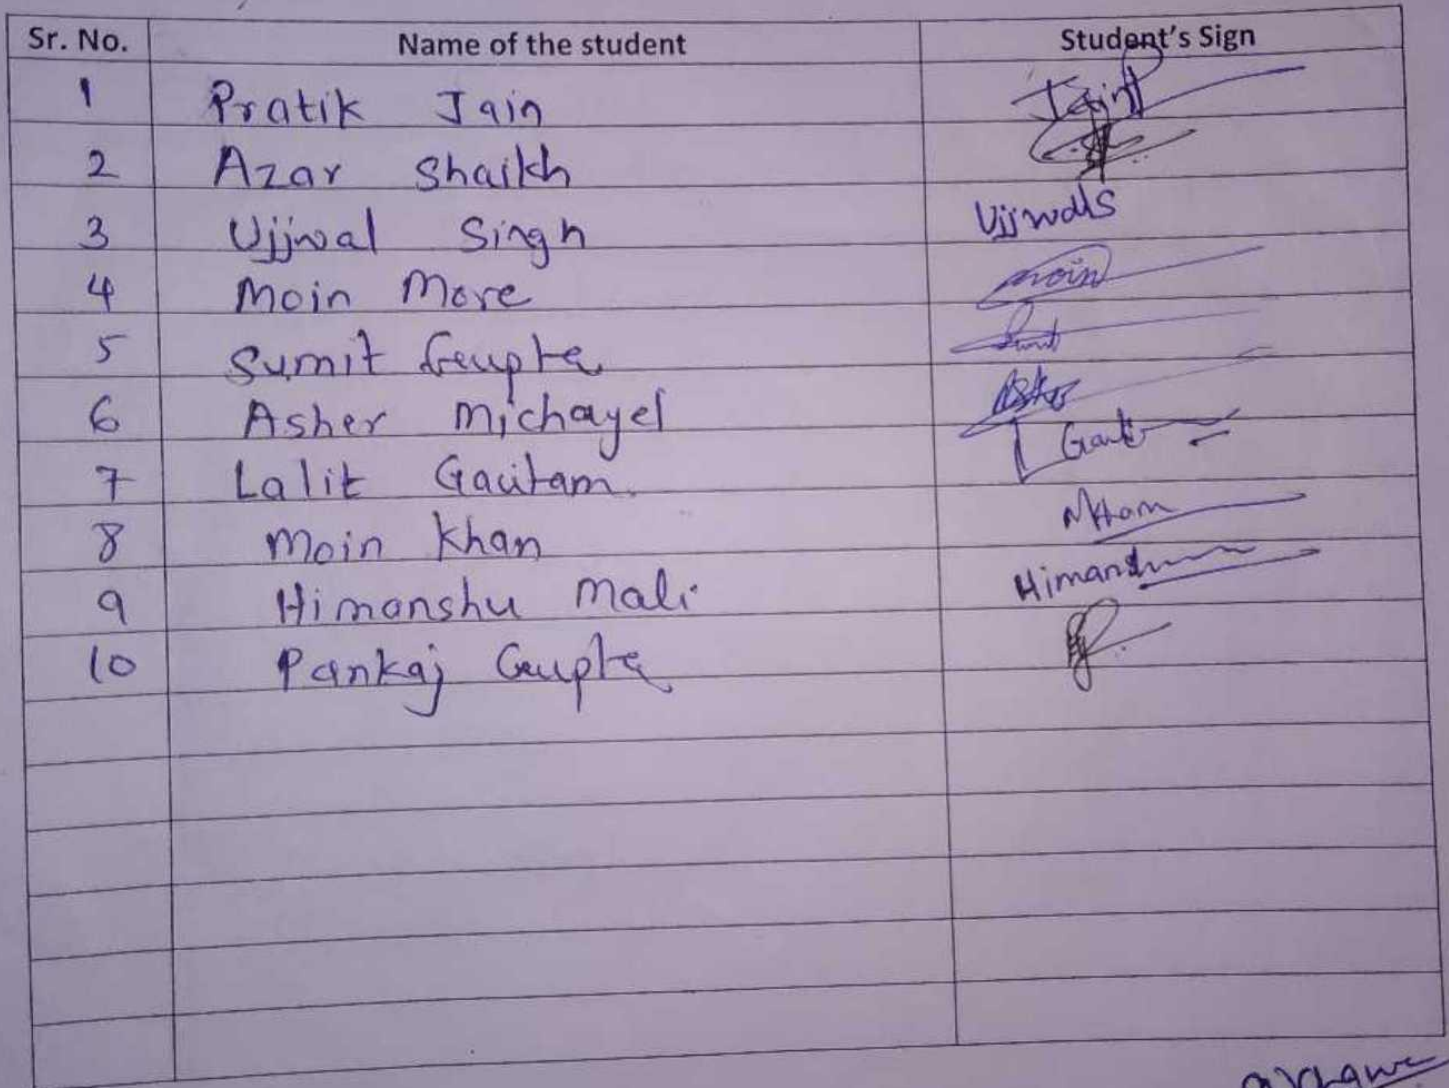 Sr. No. Name of the student Student's Sign
1 Pratik Jain Jain
2 Azar Shaikh
3 Ujjwal Singh UjjwalS
4 Moin More moin
5 Sumit Gupta Sumit
6 Asher Michayel Asher
7 Lalit Gautam
8 Moin Khan MKhan
9 Himanshu Mali Himanshu
10 Pankaj Gupta